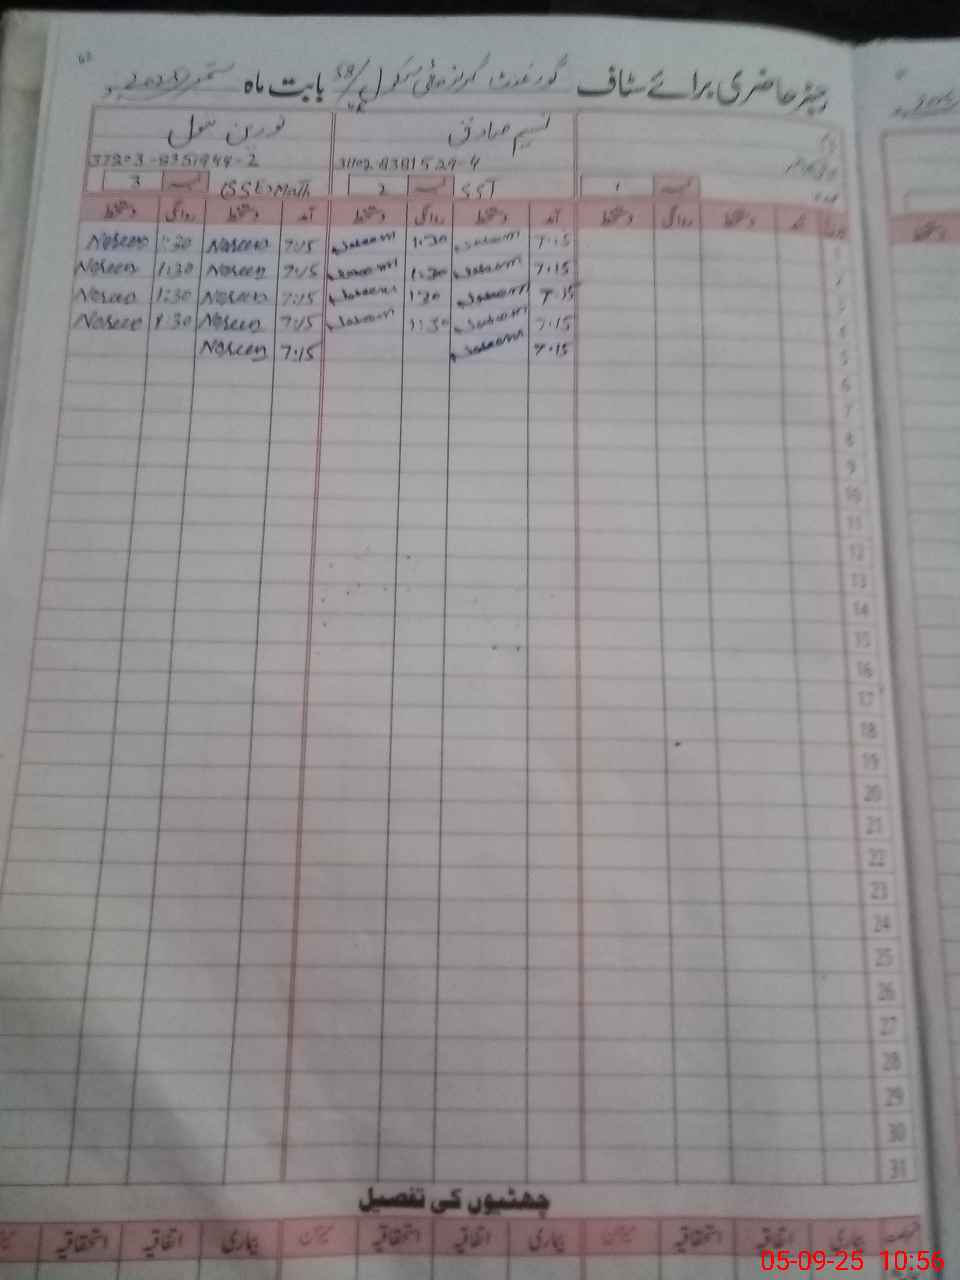 رجسٹر حاضری برائے سٹاف گورنمنٹ گرلز ہائی سکول 58/ بابت ماہ ستمبر 2025ء
نسیم صادق نورین بتول
31102-8381529-4 37203-8351944-2
1 نمبر SST نمبر 2 (SSE)Math نمبر 3
آمد دستخط روانگی دستخط آمد دستخط روانگی دستخط آمد دستخط روانگی دستخط
1 7.15 Naseem 1:30 Naseem 7:15 Noreen 1:30 Noreen
2 7.15 Naseem 1:30 Naseem 7:15 Noreen 1:30 Noreen
3 7.15 Naseem 1:30 Naseem 7:15 Noreen 1:30 Noreen
4 7.15 Naseem 1:30 Naseem 7:15 Noreen 1:30 Noreen
5 7.15 Naseem 7:15 Noreen
6
7
8
9
10
11
12
13
14
15
16
17
18
19
20
21
22
23
24
25
26
27
28
29
30
31
چھٹیوں کی تفصیل
بیماری اتفاقیہ استحقاقیہ میزان بیماری اتفاقیہ استحقاقیہ میزان بیماری اتفاقیہ استحقاقیہ
05-09-25 10:56